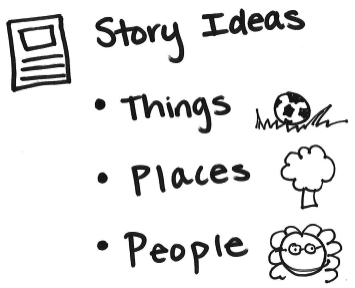 Story Ideas
• Things
• Places
• People